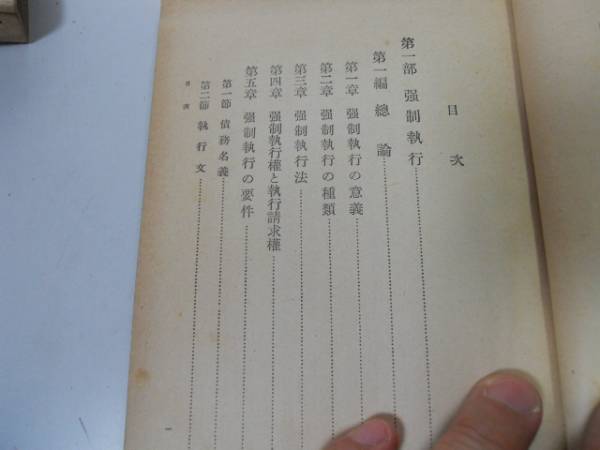 目次
第一部 强制執行
第一編 總論
第一章 强制執行の意義
第二章 强制執行の種類
第三章 强制執行法
第四章 强制執行權と執行請求權
第五章 强制執行の要件
第一節 債務名義
第二節 執行文
目次
一